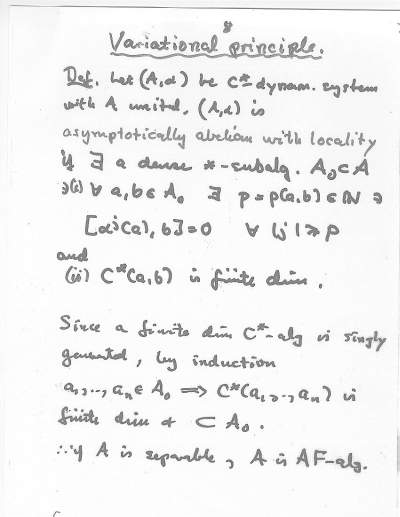 8
Variational principle.
Def. Let (A,α) be C*-dynam. system
with A unital, (A,α) is
asymptotically abelian with locality
if ∃ a dense *-subalg. A₀⊂A
∋(i) ∀ a,b∈A₀ ∃ p=p(a,b)∈ℕ ∋
[αʲ(a),b]=0 ∀ |j|≥p
and
(ii) C*(a,b) is finite dim.
Since a finite dim C*-alg is singly
generated, by induction
a₁,..,aₙ∈A₀ ⟹ C*(a₁,..,aₙ) is
finite dim & ⊂ A₀.
∴ if A is separable, A is AF-alg.